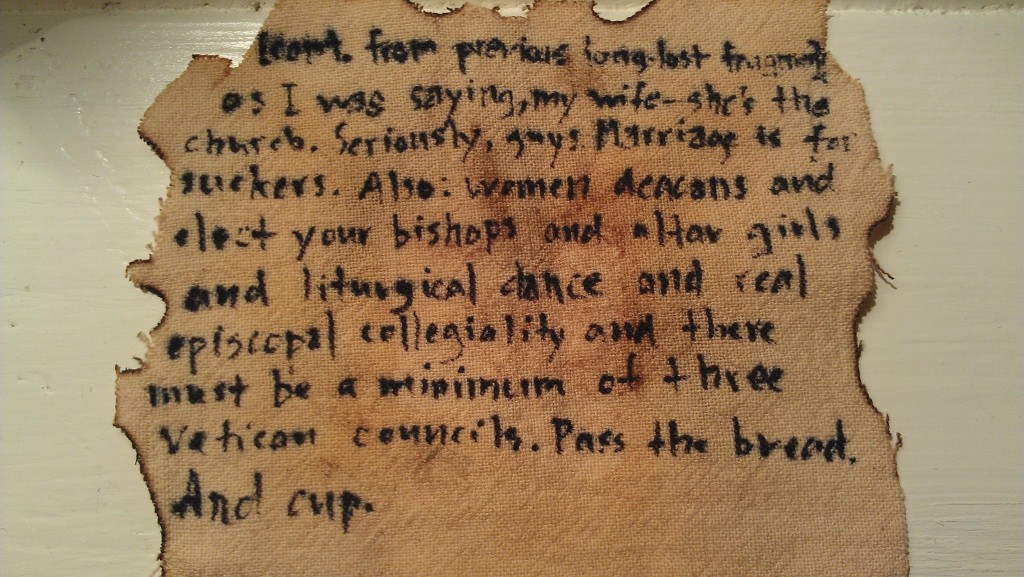 [cont. from previous long-lost fragment]
as I was saying, my wife - she's the
church. Seriously, guys. Marriage is for
suckers. Also: women deacons and
elect your bishops and altar girls
and liturgical dance and real
episcopal collegiality and there
must be a minimum of three
Vatican councils. Pass the bread.
And cup.